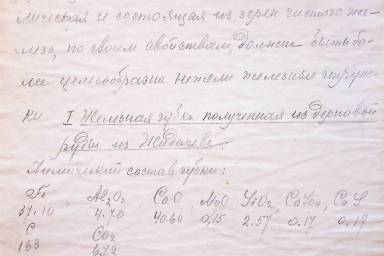 лическая и состоящая из зерен чистого же-
леза, по своим свойствам, должна быть бо-
лее целесообразна нежели железные струж-
ки I Железная губка полученная из дерновой
руды из Жидачева.
Химический состав губки:
Fe, Al2O3, CaO, MgO, SiO2, CaSO4, CaS
37.10 4.70 40.60 0,15 2.57 0.17 0.17
C CO2
163 6.72